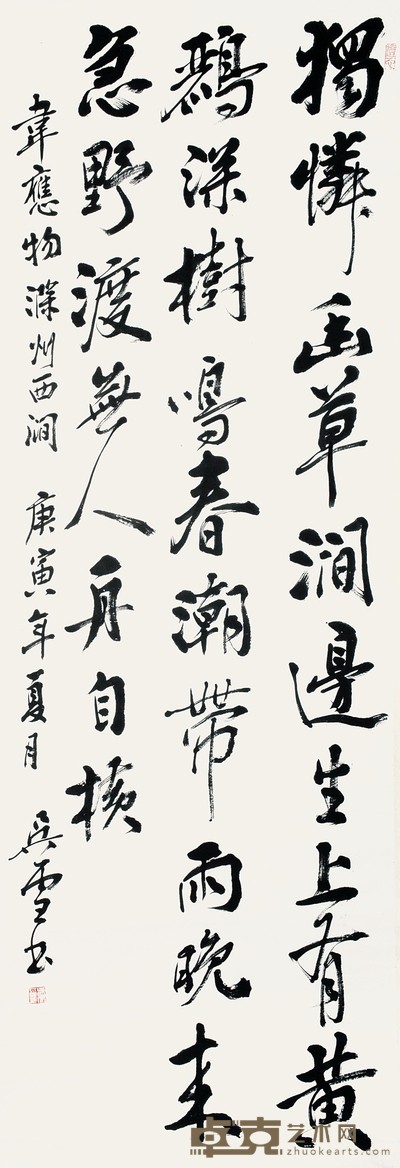 獨憐幽草澗邊生上有黄
鸝深樹鳴春潮帶雨晚来
急野渡無人舟自横
韋應物滁州西澗 庚寅年夏月 吴雪书
卓克艺术网
zhuokearts.com